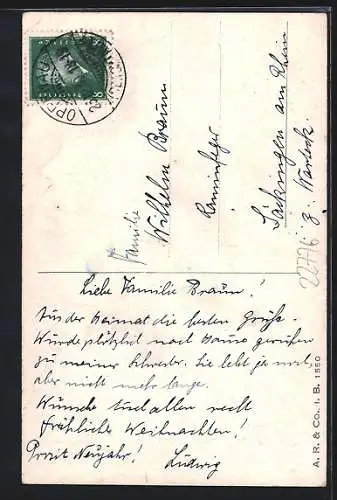 Familie
Wilhelm Braun
Kaminfeger
Säckingen am Rhein
z.
22776
Liebe Familie Braun!
Aus der Heimat die besten Grüße.
Wurde plötzlich nach Hause gerufen
zu meiner Schwester. Sie lebt ja noch
aber nicht mehr lange.
Wünsche Euch allen recht
fröhliche Weihnachten!
Prosit Neujahr! Ludwig
A. R. & Co. i. B. 1550
8 8